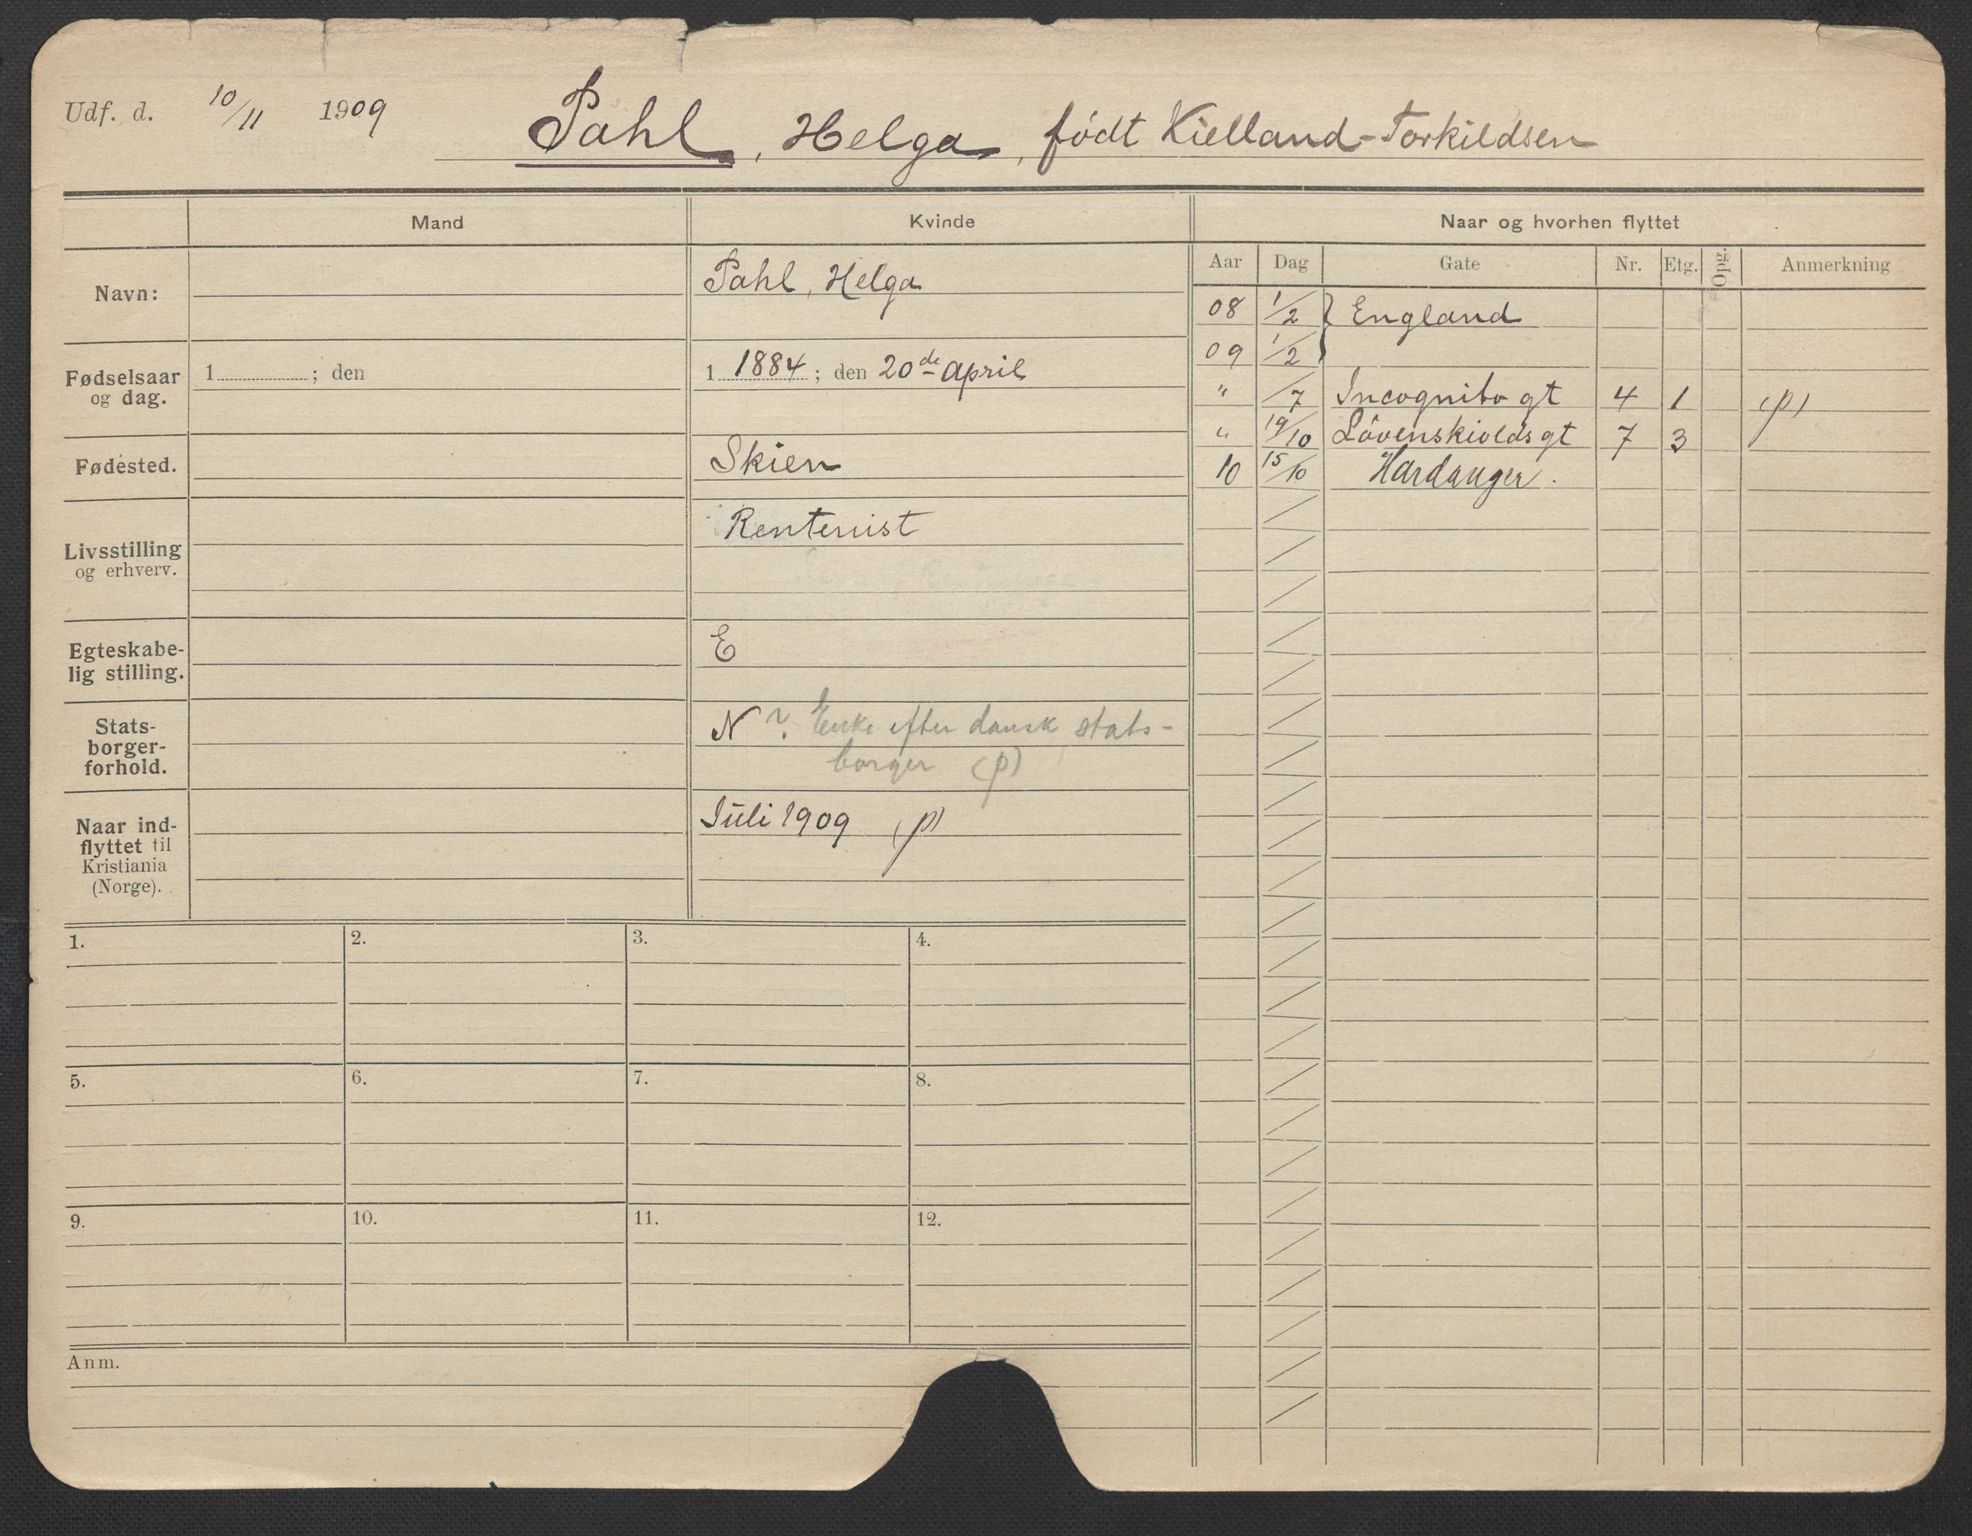 Udf. d. 10/11 1909
Pahl, Helga, født Kielland-Torkildsen
Mand
Kvinde
Naar og hvorhen flyttet
Aar Dag Gate Nr. Etg. Opg. Anmerkning
Navn:
Pahl, Helga
Fødselsaar
og dag.
1 ; den
1 1884 ; den 20de april
Fødested.
Skien
Livsstilling
og erhverv.
Rentenist
Egteskabe-
lig stilling.
E
Stats-
borger-
forhold.
N ? Enke efter dansk stats-
borger (p)
Naar ind-
flyttet til
Kristiania
(Norge).
Juli 1909 (p)
08 1/2 } England
09 1/2
" /7 Incognito gt 4 1 (p)
" 19/10 Lövenskiolds gt 7 3
10 15/10 Hardanger.
1. 2. 3. 4.
5. 6. 7. 8.
9. 10. 11. 12.
Anm.